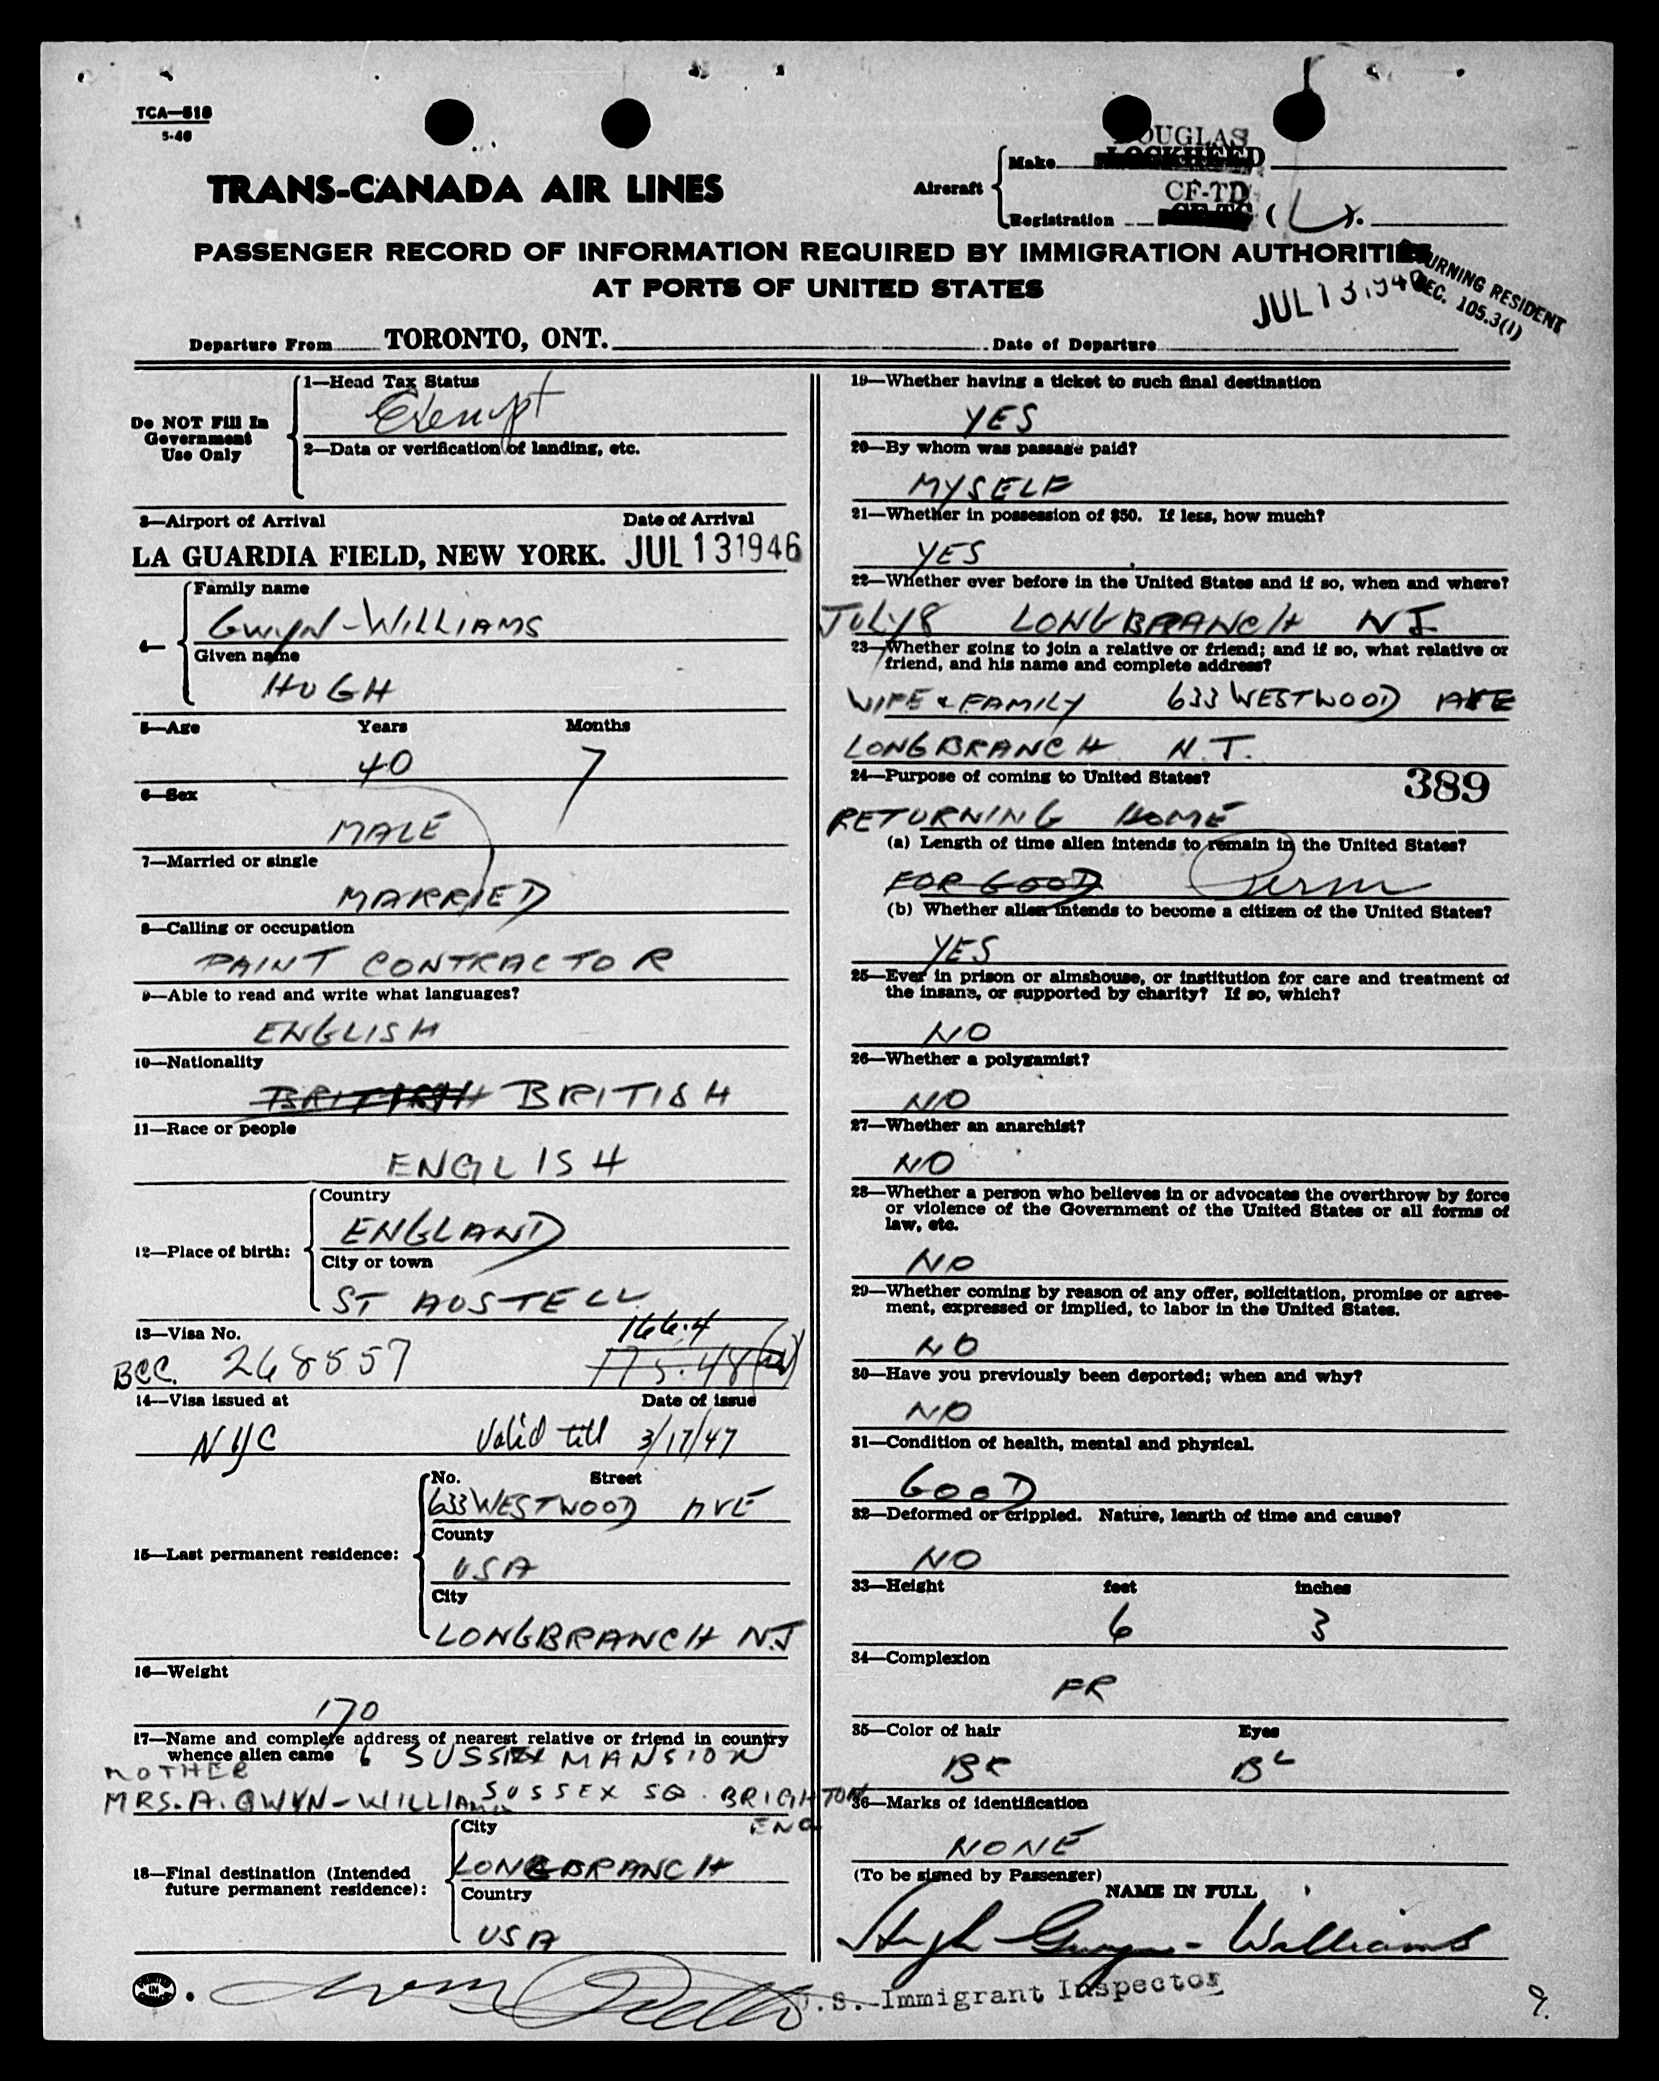 TCA—518
5-40
TRANS-CANADA AIR LINES
Aircraft
Make
DOUGLAS
LOCKHEED
Registration
CF-TD
CF-TC
( L ).
PASSENGER RECORD OF INFORMATION REQUIRED BY IMMIGRATION AUTHORITIES
AT PORTS OF UNITED STATES
RETURNING RESIDENT
SEC. 105.3(1)
JUL 13 1946
Departure From TORONTO, ONT. Date of Departure
Do NOT Fill In
Government
Use Only
1—Head Tax Status
Exempt
2—Data or verification of landing, etc.
3—Airport of Arrival Date of Arrival
LA GUARDIA FIELD, NEW YORK. JUL 13 1946
4—
Family name
GWYN-WILLIAMS
Given name
HUGH
5—Age Years Months
40 7
6—Sex
MALE
7—Married or single
MARRIED
8—Calling or occupation
PAINT CONTRACTOR
9—Able to read and write what languages?
ENGLISH
10—Nationality
BRITISH BRITISH
11—Race or people
ENGLISH
12—Place of birth:
Country
ENGLAND
City or town
ST AUSTELL
166.4
13—Visa No.
BCC. 268557 175.48
14—Visa issued at Date of issue
NYC Valid till 3/17/47
15—Last permanent residence:
No. Street
633 WESTWOOD AVE
County
USA
City
LONGBRANCH N.J
16—Weight
170
17—Name and complete address of nearest relative or friend in country
whence alien came 6 SUSSEX MANSION
MOTHER
MRS. A. GWYN-WILLIAMS SUSSEX SQ. BRIGHTON
ENG
18—Final destination (Intended
future permanent residence):
City
LONGBRANCH
Country
USA
19—Whether having a ticket to such final destination
YES
20—By whom was passage paid?
MYSELF
21—Whether in possession of $50. If less, how much?
YES
22—Whether ever before in the United States and if so, when and where?
JULY 8 LONGBRANCH NJ
23—Whether going to join a relative or friend; and if so, what relative or
friend, and his name and complete address?
WIFE & FAMILY 633 WESTWOOD AVE
LONGBRANCH N.J.
24—Purpose of coming to United States? 389
RETURNING HOME
(a) Length of time alien intends to remain in the United States?
FOR GOOD Perm
(b) Whether alien intends to become a citizen of the United States?
YES
25—Ever in prison or almshouse, or institution for care and treatment of
the insane, or supported by charity? If so, which?
NO
26—Whether a polygamist?
NO
27—Whether an anarchist?
NO
28—Whether a person who believes in or advocates the overthrow by force
or violence of the Government of the United States or all forms of
law, etc.
NO
29—Whether coming by reason of any offer, solicitation, promise or agree-
ment, expressed or implied, to labor in the United States.
NO
30—Have you previously been deported; when and why?
NO
31—Condition of health, mental and physical.
GOOD
32—Deformed or crippled. Nature, length of time and cause?
NO
33—Height feet inches
6 3
34—Complexion
FR
35—Color of hair Eyes
BR BL
36—Marks of identification
NONE
(To be signed by Passenger)
NAME IN FULL
Hugh Gwyn-Williams
U.S. Immigrant Inspector
PRINTED
IN
9.